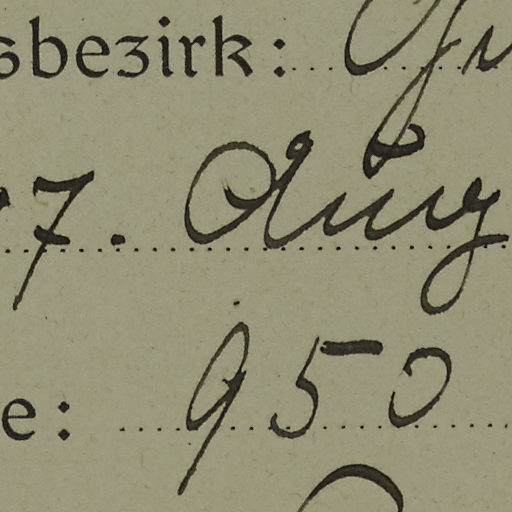 sbezirk:
7. Aug
e: 950